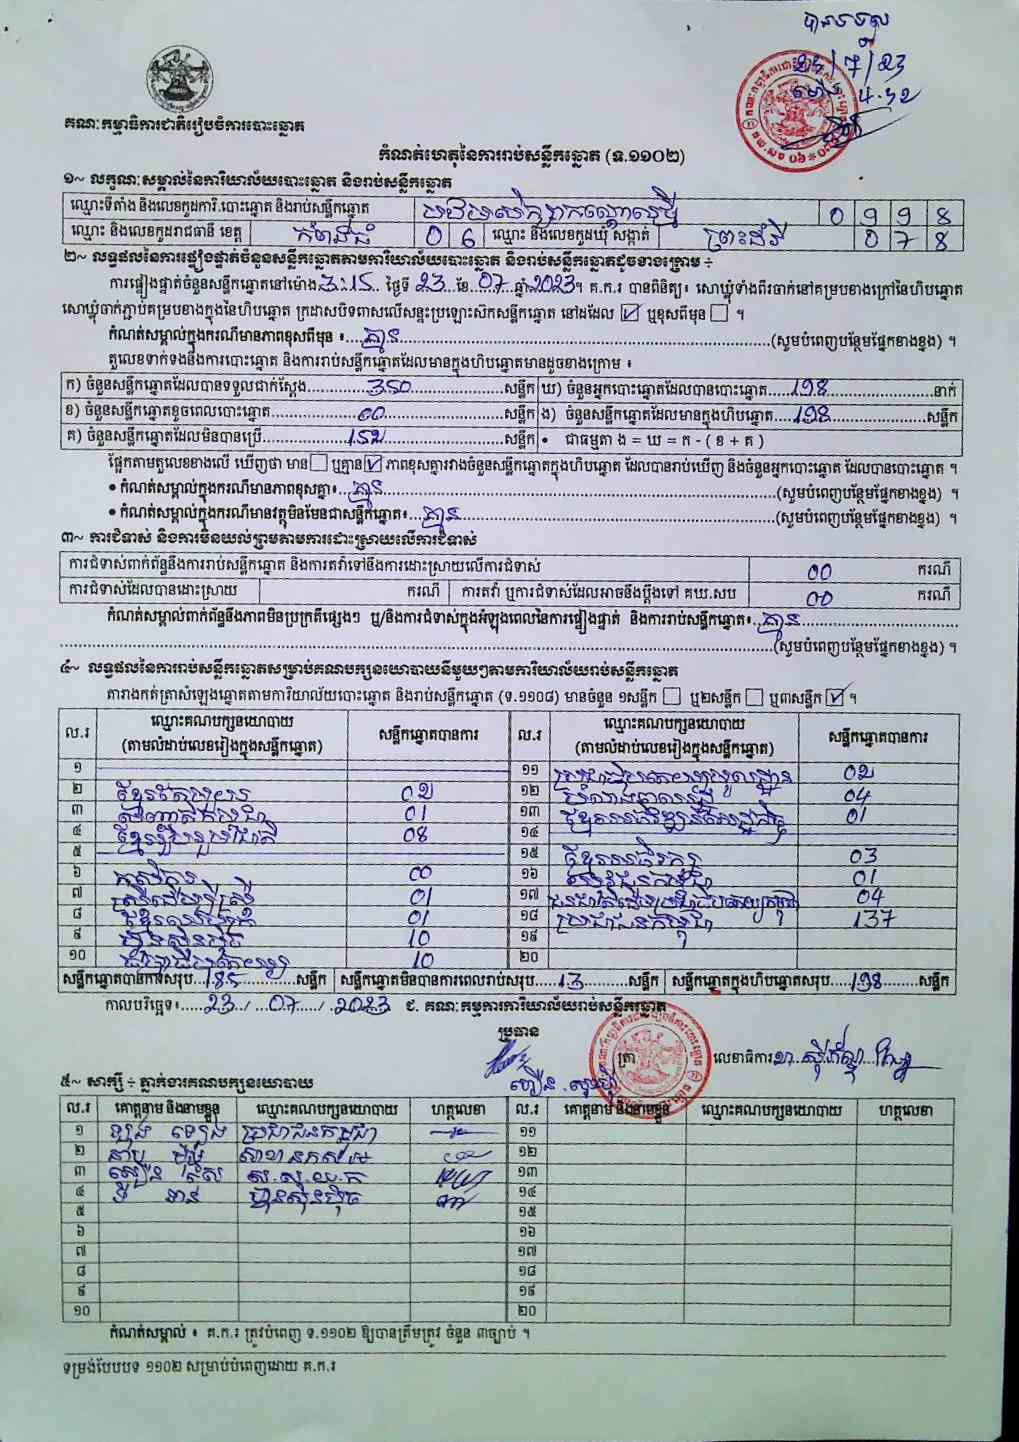 បានទទួល
24/7/23
ម៉ោង 4.32
គណៈកម្មាធិការជាតិរៀបចំការបោះឆ្នោត
កំណត់ហេតុនៃការរាប់សន្លឹកឆ្នោត (ទ.១១០២)
១~ លក្ខណៈសម្គាល់នៃការិយាល័យបោះឆ្នោត និងរាប់សន្លឹកឆ្នោត
ឈ្មោះទីតាំង និងលេខកូដការិ.បោះឆ្នោត និងរាប់សន្លឹកឆ្នោត 0 9 9 8
ឈ្មោះ និងលេខកូដរាជធានី ខេត្ត កំពង់ធំ 0 6 ឈ្មោះ និងលេខកូដឃុំ សង្កាត់ ព្រះដំរី 0 7 8
២~ លទ្ធផលនៃការផ្ទៀងផ្ទាត់ចំនួនសន្លឹកឆ្នោតតាមការិយាល័យបោះឆ្នោត និងរាប់សន្លឹកឆ្នោតដូចខាងក្រោម ÷
ការផ្ទៀងផ្ទាត់ចំនួនសន្លឹកឆ្នោតនៅម៉ោង 3:15 ថ្ងៃទី 23 ខែ 07 ឆ្នាំ 2023។ គ.ក.រ បានពិនិត្យ៖ សោឃ្លុំទាំងពីរចាក់នៅគម្របខាងក្រៅនៃហិបឆ្នោត
សោឃ្លុំចាក់ភ្ជាប់គម្របខាងក្នុងនៃហិបឆ្នោត ក្រដាសបិទពាសលើសន្ទះប្រឡោះស៊កសន្លឹកឆ្នោត នៅដដែល ☑ ឬខុសពីមុន ☐ ។
កំណត់សម្គាល់ក្នុងករណីមានភាពខុសពីមុន ៖ គ្មាន (សូមបំពេញបន្ថែមផ្នែកខាងខ្នង) ។
តួលេខទាក់ទងនឹងការបោះឆ្នោត និងការរាប់សន្លឹកឆ្នោតដែលមានក្នុងហិបឆ្នោតមានដូចខាងក្រោម ៖
ក) ចំនួនសន្លឹកឆ្នោតដែលបានទទួលជាក់ស្តែង 350 សន្លឹក ឃ) ចំនួនអ្នកបោះឆ្នោតដែលបានបោះឆ្នោត 198 នាក់
ខ) ចំនួនសន្លឹកឆ្នោតខូចពេលបោះឆ្នោត 00 សន្លឹក ង) ចំនួនសន្លឹកឆ្នោតដែលមានក្នុងហិបឆ្នោត 198 សន្លឹក
គ) ចំនួនសន្លឹកឆ្នោតដែលមិនបានប្រើ 152 សន្លឹក • ជាធម្មតា ង = ឃ = ក - ( ខ + គ )
ផ្អែកតាមតួលេខខាងលើ ឃើញថា មាន ☐ ឬគ្មាន ☑ ភាពខុសគ្នារវាងចំនួនសន្លឹកឆ្នោតក្នុងហិបឆ្នោត ដែលបានរាប់ឃើញ និងចំនួនអ្នកបោះឆ្នោត ដែលបានបោះឆ្នោត ។
• កំណត់សម្គាល់ក្នុងករណីមានភាពខុសគ្នា៖ គ្មាន (សូមបំពេញបន្ថែមផ្នែកខាងខ្នង) ។
• កំណត់សម្គាល់ក្នុងករណីមានវត្ថុមិនមែនជាសន្លឹកឆ្នោត៖ គ្មាន (សូមបំពេញបន្ថែមផ្នែកខាងខ្នង) ។
៣~ ការជំទាស់ និងការមិនយល់ព្រមតាមការដោះស្រាយលើការជំទាស់
ការជំទាស់ពាក់ព័ន្ធនឹងការរាប់សន្លឹកឆ្នោត និងការតវ៉ាទៅនឹងការដោះស្រាយលើការជំទាស់ 00 ករណី
ការជំទាស់ដែលបានដោះស្រាយ ករណី ការតវ៉ា ឬការជំទាស់ដែលអាចនឹងប្តឹងទៅ គឃ.សប 00 ករណី
កំណត់សម្គាល់ពាក់ព័ន្ធនឹងភាពមិនប្រក្រតីផ្សេងៗ ឬ/និងការជំទាស់ក្នុងអំឡុងពេលនៃការផ្ទៀងផ្ទាត់ និងការរាប់សន្លឹកឆ្នោត៖ គ្មាន
(សូមបំពេញបន្ថែមផ្នែកខាងខ្នង) ។
៤~ លទ្ធផលនៃការរាប់សន្លឹកឆ្នោតសម្រាប់គណបក្សនយោបាយនីមួយៗតាមការិយាល័យរាប់សន្លឹកឆ្នោត
តារាងកត់ត្រាសំឡេងឆ្នោតតាមការិយាល័យបោះឆ្នោត និងរាប់សន្លឹកឆ្នោត (ទ.១១០៨) មានចំនួន ១សន្លឹក ☐ ឬ២សន្លឹក ☐ ឬ៣សន្លឹក ☑ ។
ល.រ ឈ្មោះគណបក្សនយោបាយ (តាមលំដាប់លេខរៀងក្នុងសន្លឹកឆ្នោត) សន្លឹកឆ្នោតបានការ ល.រ ឈ្មោះគណបក្សនយោបាយ (តាមលំដាប់លេខរៀងក្នុងសន្លឹកឆ្នោត) សន្លឹកឆ្នោតបានការ
១ ១១ 02
២ 02 ១២ 04
៣ 01 ១៣ 01
៤ ខ្មែររួបរួមជាតិ 08 ១៤
៥ ១៥ 03
៦ 00 ១៦ 01
៧ 01 ១៧ 04
៨ 01 ១៨ ប្រជាជនកម្ពុជា 137
៩ ហ៊្វុនស៊ិនប៉ិច 10 ១៩
១០ 10 ២០
សន្លឹកឆ្នោតបានការសរុប 185 សន្លឹក សន្លឹកឆ្នោតមិនបានការពេលរាប់សរុប 13 សន្លឹក សន្លឹកឆ្នោតក្នុងហិបឆ្នោតសរុប 198 សន្លឹក
កាលបរិច្ឆេទ៖ 23 / 07 / 2023 ៩. គណៈកម្មការការិយាល័យរាប់សន្លឹកឆ្នោត
ប្រធាន
ត្រា លេខាធិការ
៥~ សាក្សី ÷ ភ្នាក់ងារគណបក្សនយោបាយ
ល.រ គោត្តនាម និងនាមខ្លួន ឈ្មោះគណបក្សនយោបាយ ហត្ថលេខា ល.រ គោត្តនាម និងនាមខ្លួន ឈ្មោះគណបក្សនយោបាយ ហត្ថលេខា
១ ប្រជាជនកម្ពុជា ១១
២ ១២
៣ ១៣
៤ ហ៊្វុនស៊ិនប៉ិច ១៤
៥ ១៥
៦ ១៦
៧ ១៧
៨ ១៨
៩ ១៩
១០ ២០
កំណត់សម្គាល់ ៖ គ.ក.រ ត្រូវបំពេញ ទ.១១០២ ឱ្យបានត្រឹមត្រូវ ចំនួន ៣ច្បាប់ ។
ទម្រង់បែបបទ ១១០២ សម្រាប់បំពេញដោយ គ.ក.រ